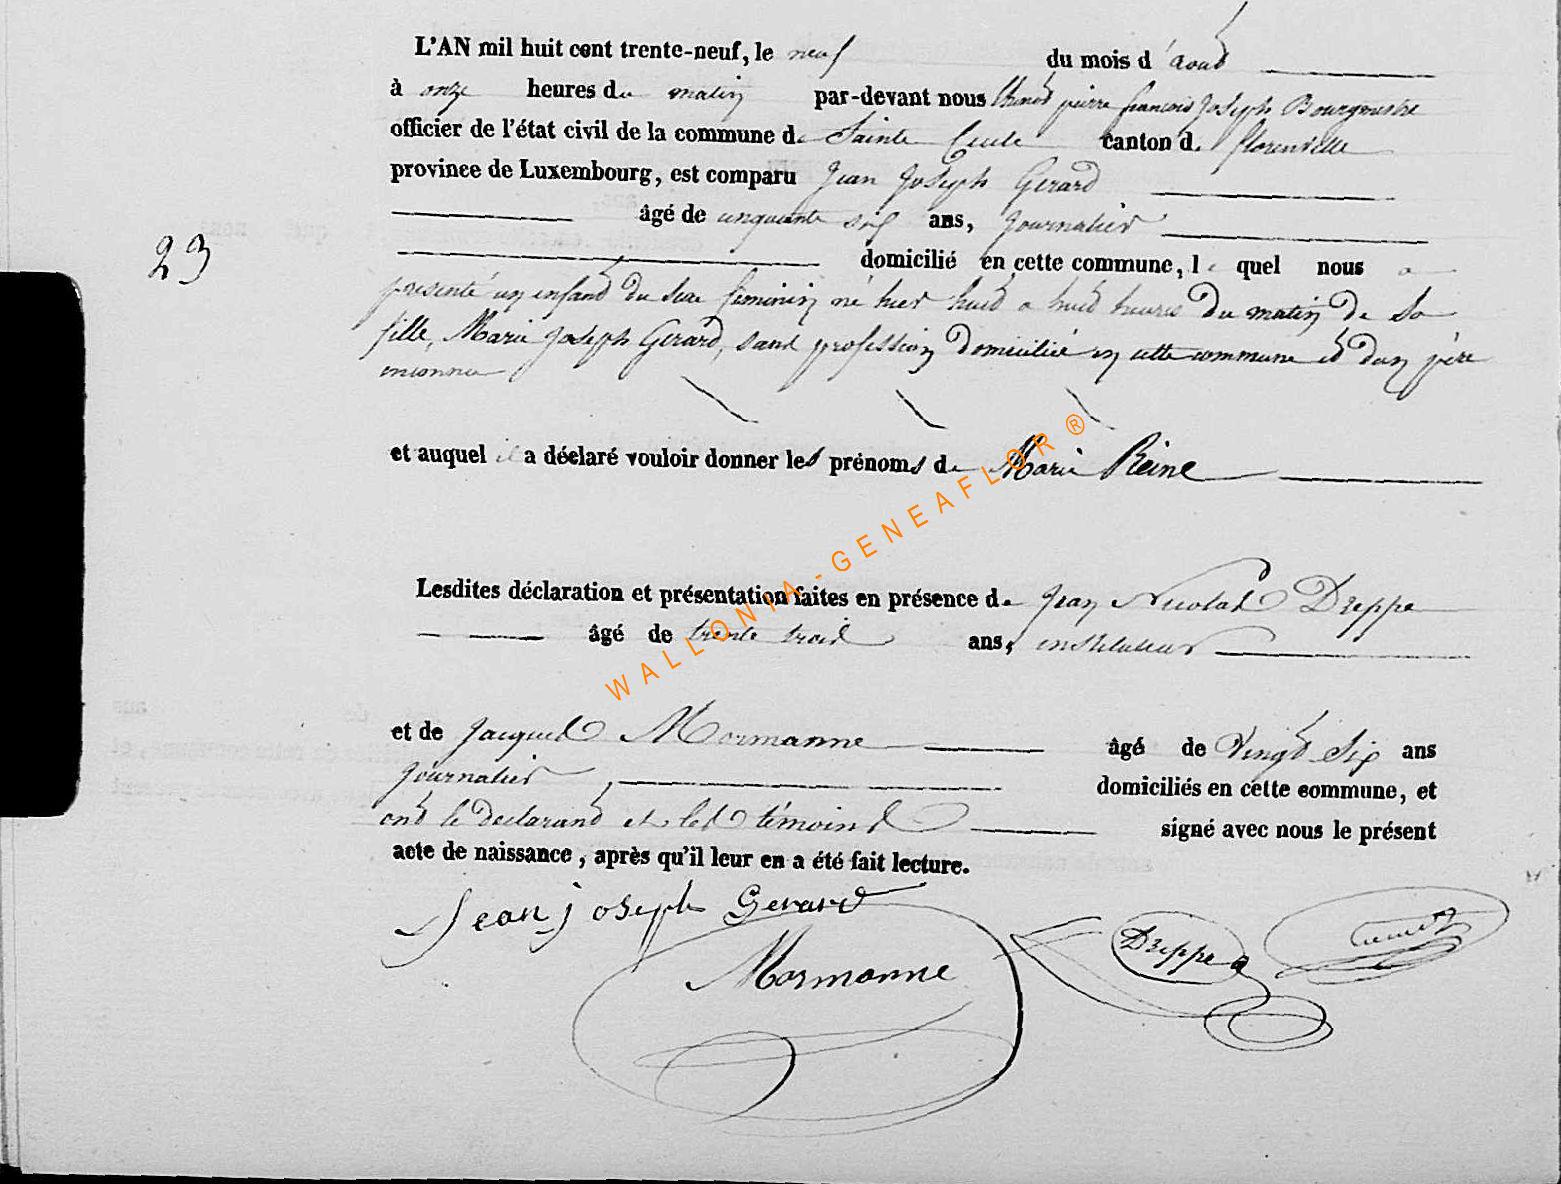 L'AN mil huit cent trente-neuf, le neuf du mois d'août
à onze heures du matin par-devant nous pierre françois Joseph Bourgmestre
officier de l'état civil de la commune de Sainte Cecile canton de florenville
province de Luxembourg, est comparu Jean Joseph Gerard
âgé de cinquante six ans, journalier
23
domicilié en cette commune, le quel nous a
présenté un enfant du sexe féminin né hier huit a huit heures du matin de sa
fille, Marie Joseph Gerard, sans profession domiciliée en cette commune et d'un père
inconnu
et auquel il a déclaré vouloir donner les prénoms de Marie Reine
WALLONIA-GENEAFLOR®
Lesdites déclaration et présentation faites en présence de Jean Nicolas Dreppe
âgé de trente trois ans, instituteur
et de Jacques Mormanne âgé de vingt six ans
journalier domiciliés en cette commune, et
ont le déclarant et les témoins signé avec nous le présent
acte de naissance, après qu'il leur en a été fait lecture.
Jean joseph Gerard
Dreppe
Mormanne